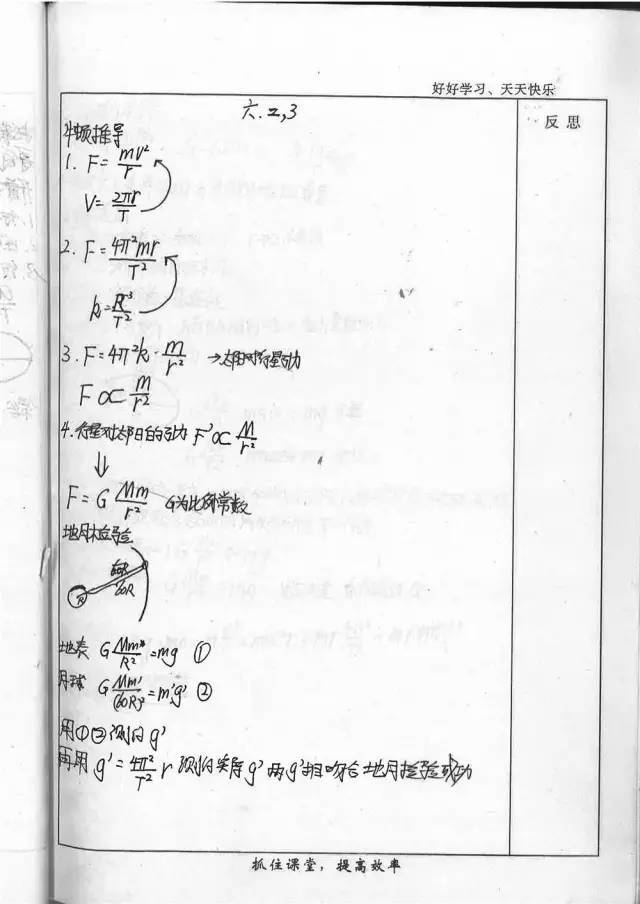 好好学习、天天快乐
六.2,3
反思
牛顿推导
1. F=mv²/r
V=2πr/T
2. F=4π²mr/T²
k=R³/T²
3. F=4π²k·m/r² →太阳对行星引力
F∝m/r²
4.行星对太阳的引力 F'∝M/r²
⇓
F=G Mm/r² G为比例常数
地月检验
60R
60R
R
地表 G Mm/R²=mg ①
月球 G Mm'/(60R)²=m'g' ②
用①②测的g'
再用g'=4π²/T² r 测的实际g' 两g'相吻合 地月检验成功
抓住课堂，提高效率